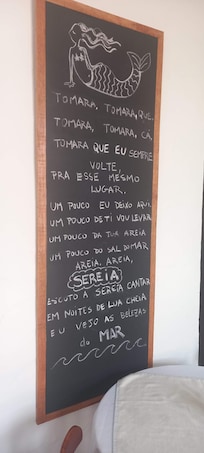 TOMARA, TOMARA, QUE
TOMARA, TOMARA, CÁ,
TOMARA QUE EU SEMPRE
VOLTE,
PRA ESSE MESMO
LUGAR.
UM POUCO EU DEIXO AQUI
UM POUCO DE TI VOU LEVAR
UM POUCO DA TUA AREIA
UM POUCO DO SAL DO MAR
AREIA, AREIA,
SEREIA
ESCUTO A SEREIA CANTAR
EM NOITES DE LUA CHEIA
EU VEJO AS BELEZAS
do MAR